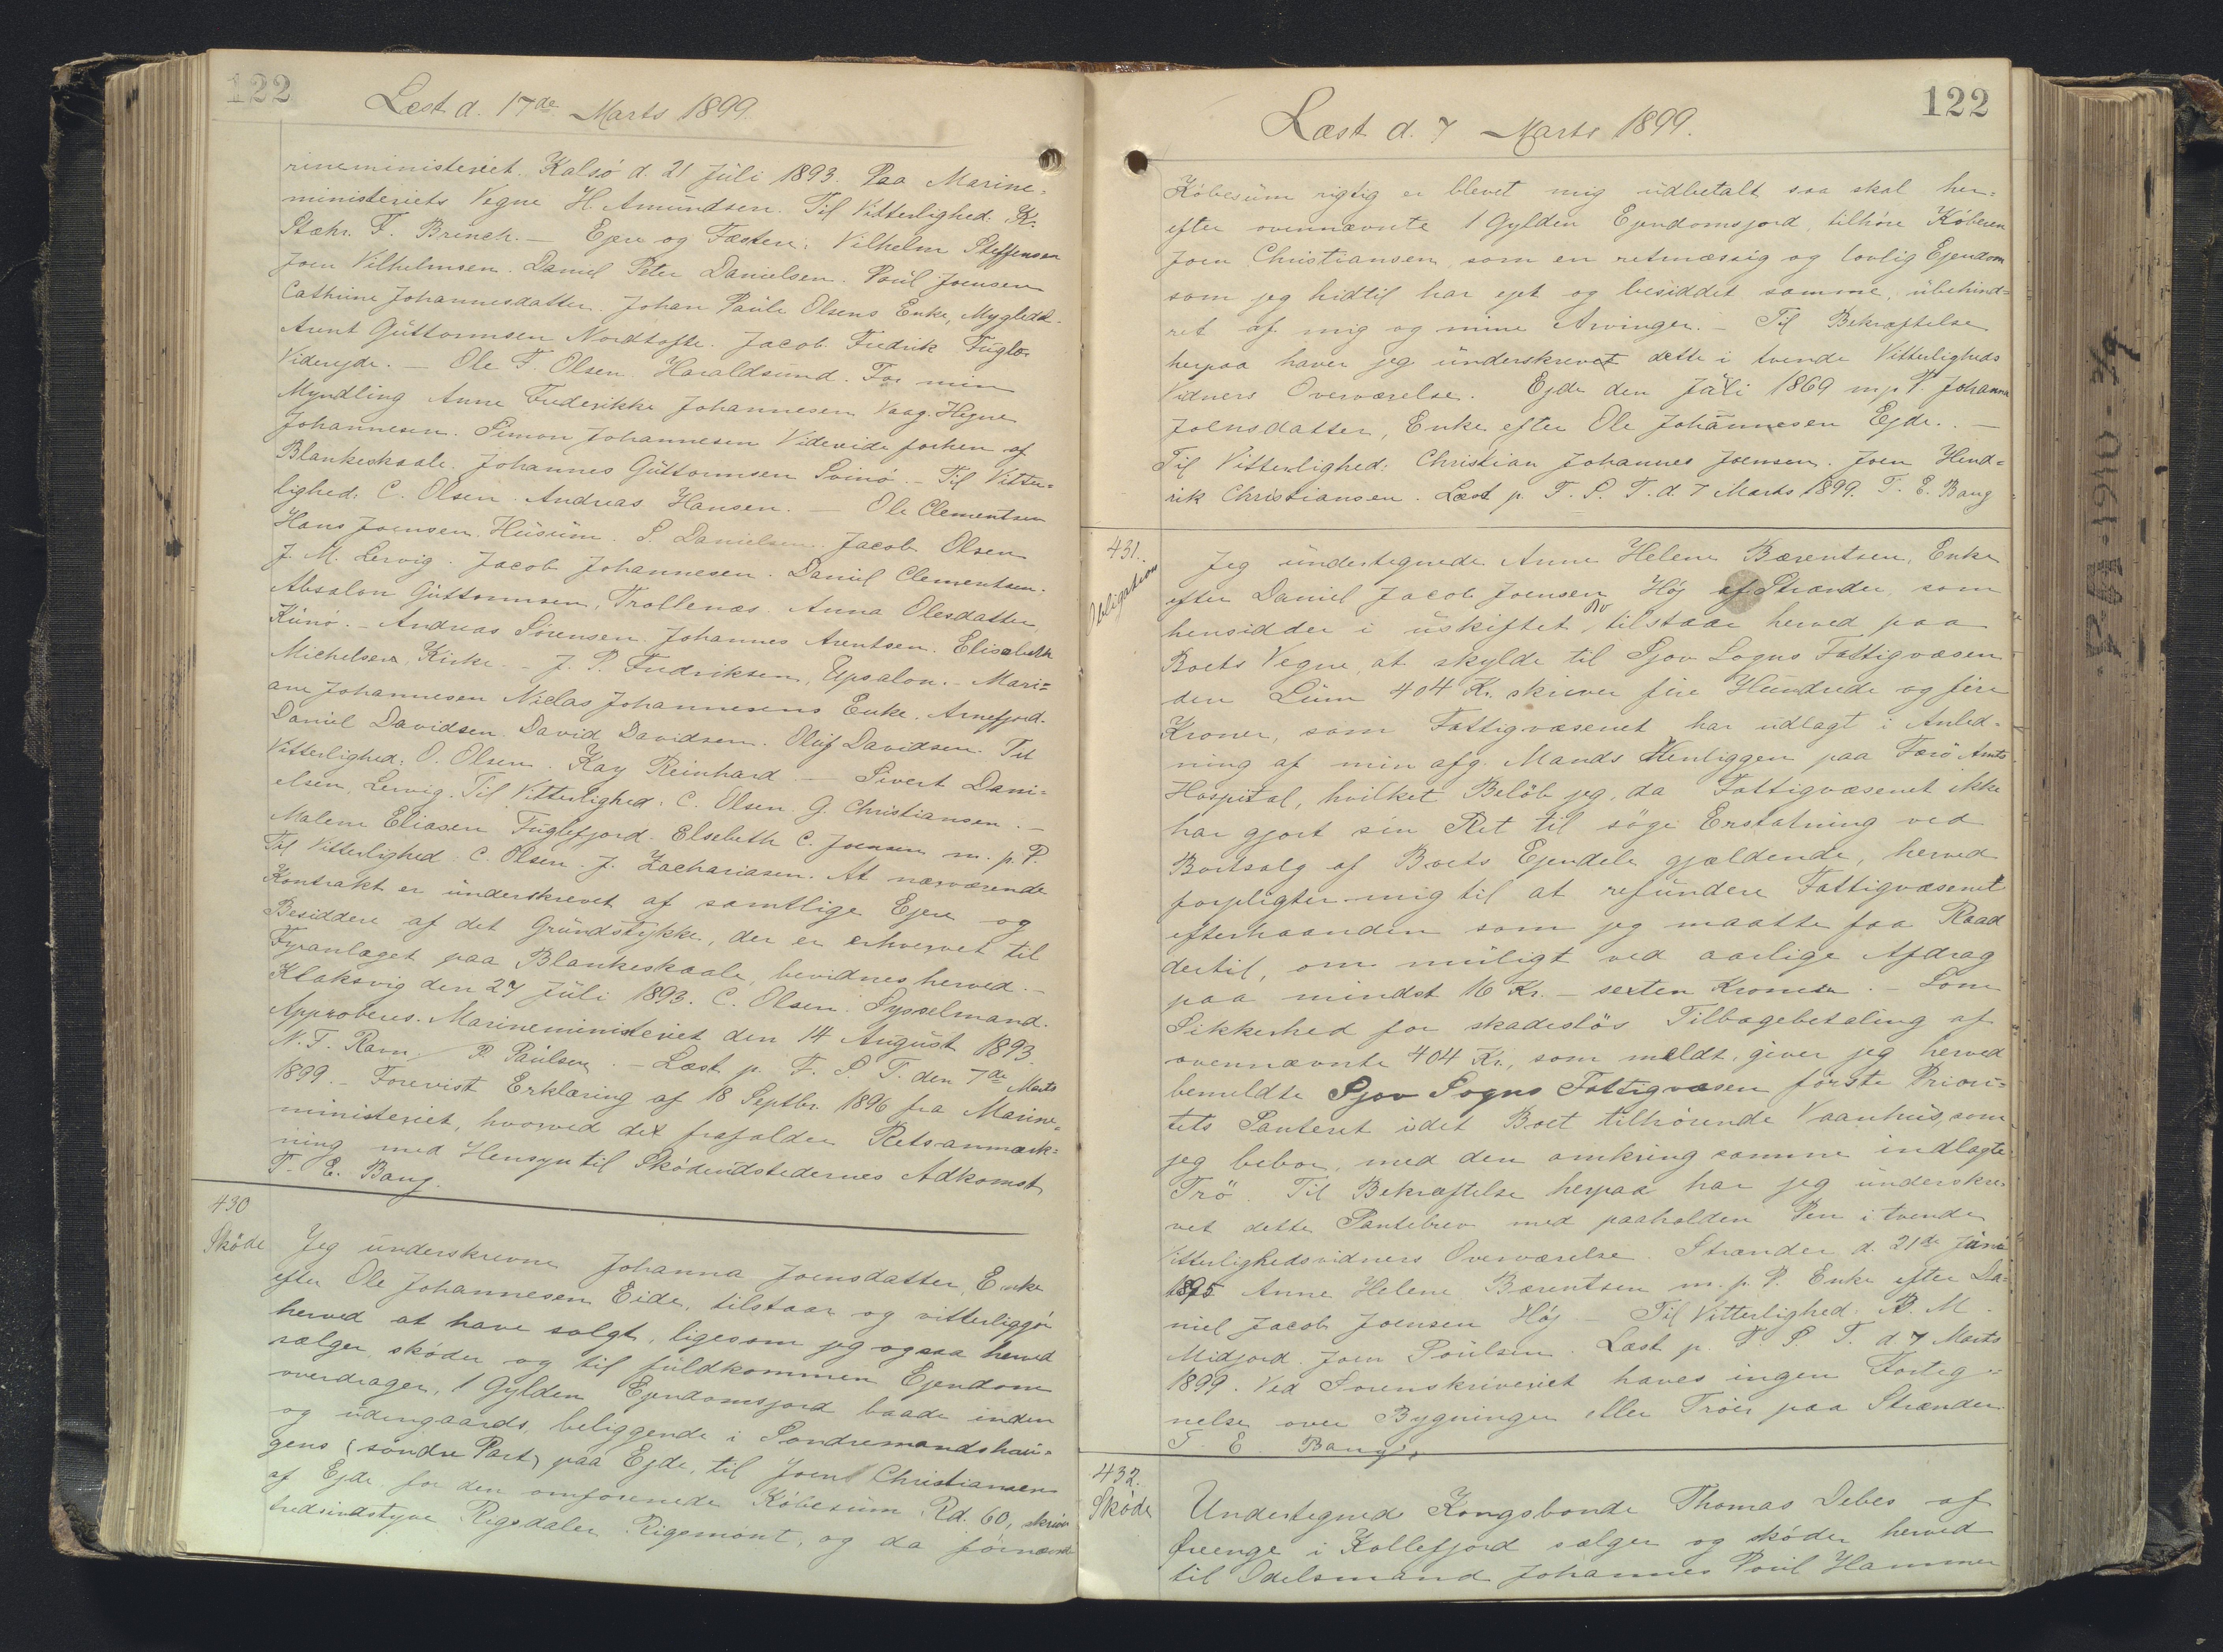 122
Læst d. 17de Marts 1899.
rineministeriet. Kalsö d. 21 Júli 1893. Paa Marine=
ministeriets Vegne H. Amúndsen. Til Vitterlighed: Kr.
Stæhr. F. Brinch. — Ejere og Fæstere: Vilhelm Steffensen
Joen Vilhelmsen. Daniel Peter Danielsen. Poúl Joensen
Cathrine Johannesdatter. Johan Paúle Olsens Enke, Mygledal.
Arent Gúttormsen Nordtofte. Jacob Fredrik Fúglø
Viderejde. — Ole F. Olsen. Haraldsund. For min
Myndling Anne Frederikke Johannesen Vaag. Hegne
Johannesen. Simon Johannesen Videvide forhen af
Blankeskaale. Johannes Gúttormsen Svinö. — Til Vitter=
lighed: C. Olsen. Andreas Hansen. — Ole Clementsen
Hans Joensen. Húsúm. S. Danielsen. Jacob Olsen
J. M. Lervig. Jacob Johannesen. Daniel Clementsen.
Absalon Gúttormsen, Trollenæs. Anna Olesdatter
Kúnö. — Andreas Sörensen. Johannes Arentsen. Elisabeth
Michelsen, Kirke. — J. P. Fredriksen, Upsalon. — Mari=
ane Johannesen Niclas Johannesens Enke. Arnefjord.
Daniel Davidsen. David Davidsen. Olúf Davidsen. Til
Vitterlighed: O. Olsen. Kay Reinhard. — Sivert Dani=
elsen, Lervig. Til Vitterlighed: C. Olsen. G. Christiansen. —
Malene Eliasen Fúglefjord. Elsebeth C. Joensen m. p. P.
Til Vitterlighed: C. Olsen. J. Zachariasen. At nærværende
Kontrakt er únderskrevet af samtlige Ejere og
Besiddere af det Gründstykke, der er erhvervet til
Fyranlæget paa Blankeskaale, bevidnes herved. —
Klaksvig den 27 Júli 1893. C. Olsen. Sysselmand.
Approberes. Marineministeriet den 14 Augúst 1893.
N. F. Ravn. / P. Paúlsen. — Læst p. F. S. T. den 7de Marts
1899. — Forevist Erklæring af 18 Septbr. 1896 fra Marine=
ministeriet, hvorved det frafalder Retsanmærk=
ning med Hensyn til Sködeúdstedernes Adkomst
T. E. Bang.
430
Sköde
Jeg únderskrevne Johanna Joensdatter, Enke
efter Ole Johannesen Eide, tilstaar og vitterliggjör
herved at have solgt, ligesom jeg ogsaa herved
sælger, sköder og til fúldkommen Ejendom
overdrager, 1 Gylden Ejendomsjord baade inden
og údengaards, beliggende i Söndremandshaú=
gens (söndre Part) paa Ejde, til Joen Christiansen
af Ejde for den omforenede Köbesúm Rd. 60, skriver
tredsindstyve Rigsdaler Rigsmönt, og da förnævnte
122
Læst d. 7 Marts 1899.
Köbesúm rigtig er blevet mig údbetalt saa skal her=
efter ovennævnte 1 Gylden Ejendomsjord, tilhöre Köberen
Joen Christiansen som en retmæssig og lovlig Ejendom
som jeg hidtil har ejet og besiddet samme, úbehind=
ret af mig og mine Arvinger. — Til Bekræftelse
herpaa haver jeg únderskrevet dette i tvende Vitterligheds
Vidners Overværelse. Ejde den Júli 1869 m. p. P. Johanna
Joensdatter, Enke efter Ole Johannesen Ejde. —
Til Vitterlighed: Christian Johannes Joensen. Joen Hend=
rik Christiansen. Læst p. F. S. T. d. 7 Marts 1899. T. E. Bang
431.
Obligation
Jeg úndertegnede Anne Helene Bærentsen, Enke
efter Daniel Jacob Joensen Höj af Strænder, som
hensidder i úskiftet Bo, tilstaar herved paa
Boets Vegne, at skylde til Sjov Sogns Fattigvæsen
den Súm 404 Kr. skriver fire Húndrede og fire
Kroner, som Fattigvæsenet har údlagt i Anled=
ning af min afg. Mands Henliggen paa Færö Amts
Hospital, hvilket Belöb jeg, da Fattigvæsenet ikke
har gjort sin Ret til söge Erstatning ved
Bortsalg af Boets Ejendele gjældende, herved
forpligter mig til at refúndere Fattigvæsenet
efterhaanden som jeg maatte faa Raad
dertil, om múligt ved aarlige Afdrag
paa mindst 16 Kr. — sexten Kroner. — Som
Sikkerhed for skadeslös Tilbagebetaling af
ovennævnte 404 Kr., som meldt, giver jeg herved
bemeldte Sjov Sogns Fattigvæsen förste Priori=
tets Panteret i det Boet tilhörende Vaanhús, som
jeg beboer, med den omkring samme indlagte
Trö. Til Bekræftelse herpaa har jeg únderskre
vet dette Pantebrev med paaholden Pen i tvende
Vitterlighedsvidners Overværelse. Strænder d. 21de Júni
1895 Anne Helene Bærentsen m. p. P. Enke efter Da=
niel Jacob Joensen Höj. — Til Vitterlighed: B. M.
Midjord. Joen Poúlsen. Læst p. F. S. T. d. 7 Marts
1899. Ved Sorenskriveriet haves ingen Forteg=
nelse over Bygninger eller Tröer paa Strænder.
T. E. Bang.
432.
Sköde
Undertegnede Kongsbonde Thomas Debes af
i Kollefjord sælger og sköder herved
til Odelsmand Johannes Poúl Hammer